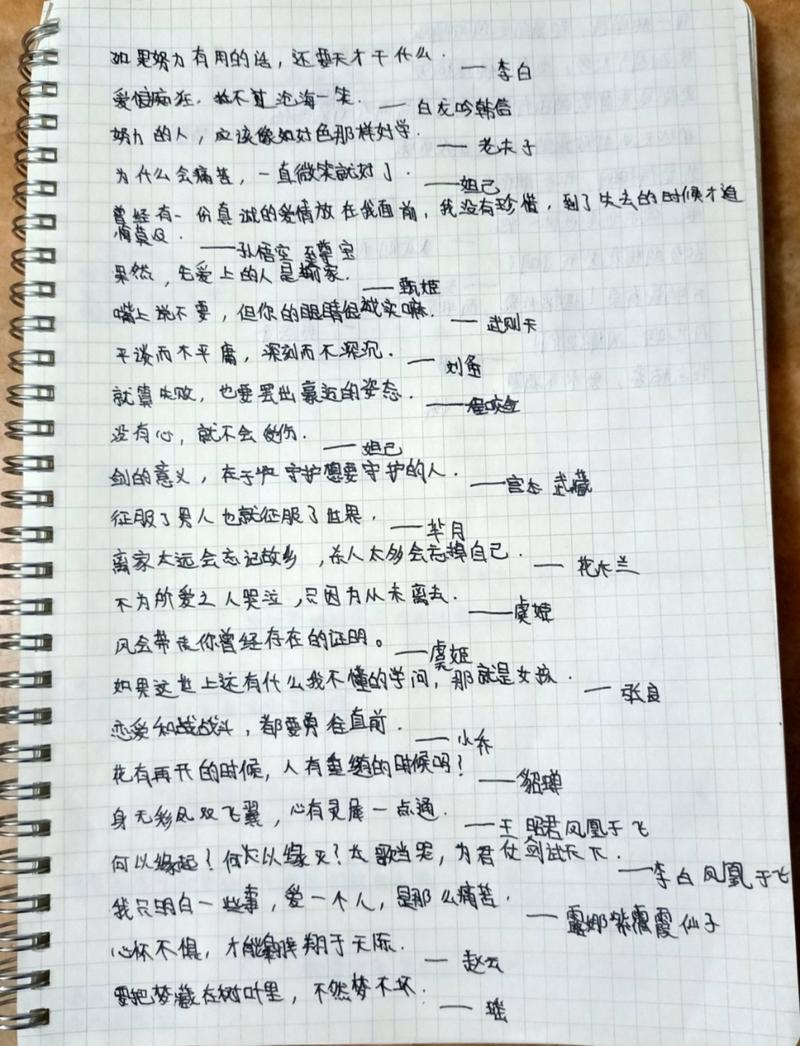 如果努力有用的话，还要天才干什么. ——李白
爱恨痴狂，敌不算沧海一笑. ——白龙吟韩信
努力的人，应该像如好色那样好学. ——老夫子
为什么会痛苦，一直微笑就好了. ——妲己
曾经有一份真诚的爱情放在我面前，我没有珍惜，到了失去的时候才追
悔莫及. ——孙悟空 至尊宝
果然，先爱上的人是输家. ——甄姬
嘴上说不要，但你的眼睛很诚实嘛. ——武则天
平淡而不平庸，深刻而不深沉. ——刘备
就算失败，也要罢出豪迈的姿态. ——程咬金
没有心，就不会受伤. ——妲己
剑的意义，在于守护想要守护的人. ——宫本 武藏
征服了男人也就征服了世界. ——芈月
离家太远会忘记故乡，杀人太多会忘掉自己. ——花木兰
不为所爱之人哭泣，只因为从未离去. ——虞姬
风会带走你曾经存在的证明。——虞姬
如果这世上还有什么我不懂的学问，那就是女孩. ——张良
恋爱和战战斗，都要勇往直前. ——小乔
花有再开的时候，人有重逢的时候吗？——貂蝉
身无彩凤双飞翼，心有灵犀一点通. ——王昭君凤凰于飞
何以缘起？何以缘灭？长歌当哭，为君仗剑试天下. ——李白凤凰于飞
我只明白一些事，爱一个人，是那么痛苦. ——露娜紫霞仙子
心怀不惧，才能翱翔于天际. ——赵云
要把梦藏在树叶里，不然梦不坏. ——瑶